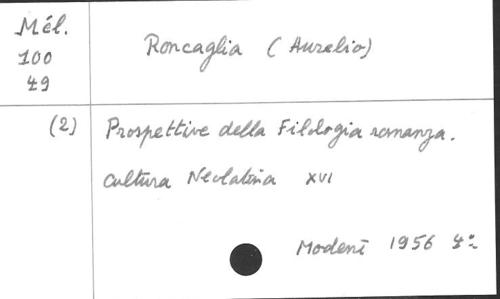 Mél.
100
49
Roncaglia (Aurelio)
(2) Prospettive della Filologia romanza.
Cultura Neolatina XVI
Modena 1956 4º